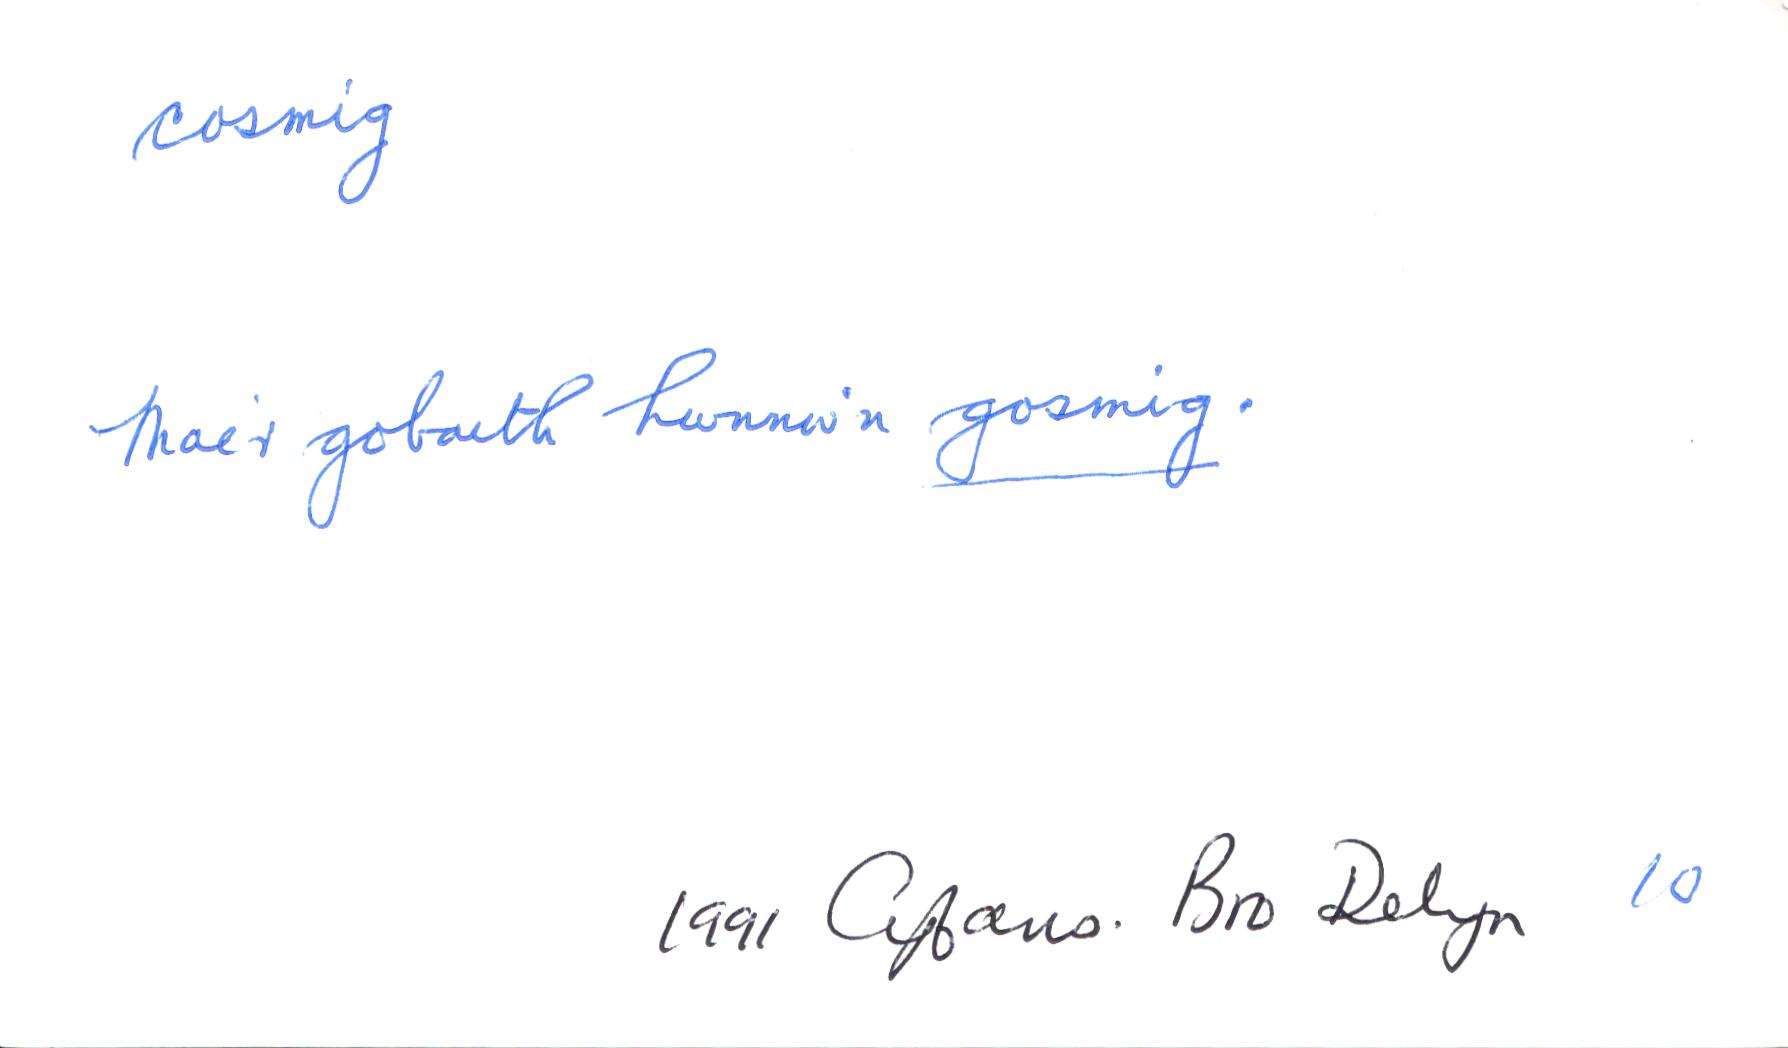 cosmig
Mae'r gobaith hwnnw'n gosmig.
1991 Cyfans. Bro Delyn 10